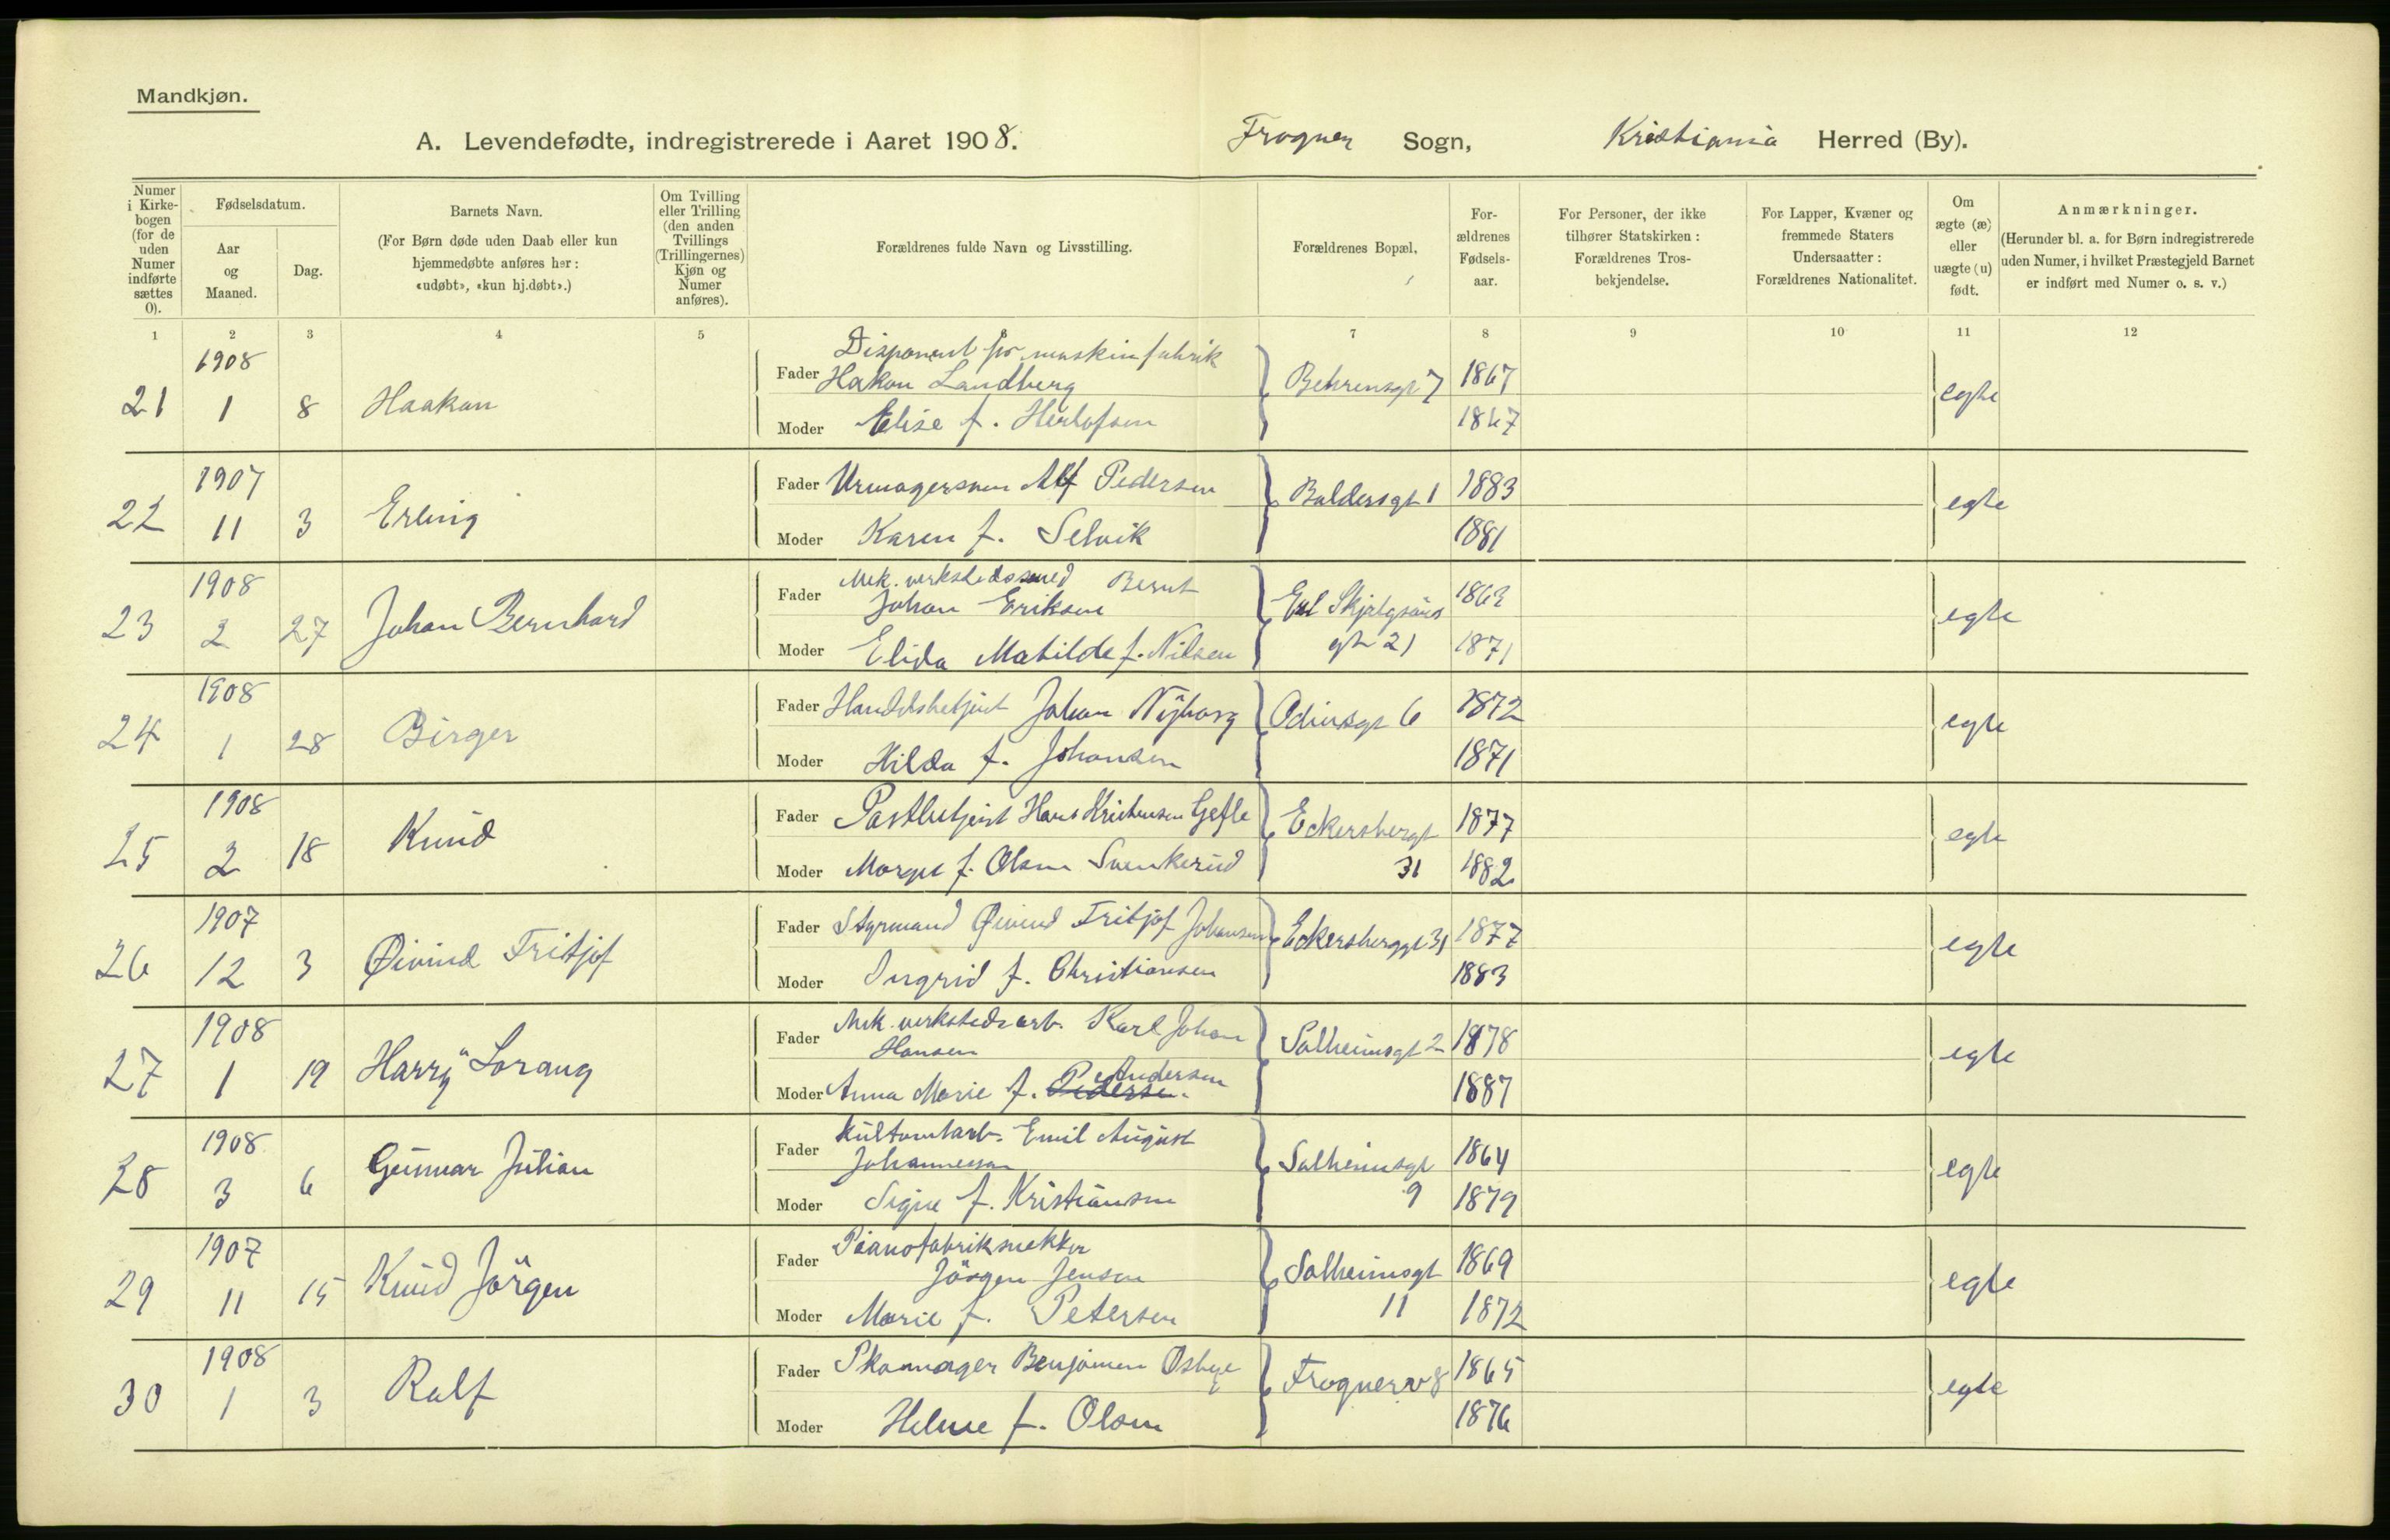 Mandkjøn.
A. Levendefødte, indregistrerede i Aaret 1908. Frogner Sogn, Kristiania Herred (By).
Numer i Kirkebogen (for de uden Numer indførte sættes 0).
Fødselsdatum.
Aar og Maaned.
Dag.
Barnets Navn.
(For Børn døde uden Daab eller kun hjemmedøbte anføres her: «udøbt», «kun hj.døbt».)
Om Tvilling eller Trilling (den anden Tvillings (Trillingernes) Kjøn og Numer anføres).
Forældrenes fulde Navn og Livsstilling.
Forældrenes Bopæl,
Forældrenes Fødselsaar.
For Personer, der ikke tilhører Statskirken: Forældrenes Trosbekjendelse.
For Lapper, Kvæner og fremmede Staters Undersaatter: Forældrenes Nationalitet.
Om ægte (æ) eller uægte (u) født.
Anmærkninger.
(Herunder bl. a. for Børn indregistrerede uden Numer, i hvilket Præstegjeld Barnet er indført med Numer o. s. v.)
1 2 3 4 5 6 7 8 9 10 11 12
21 1908 1 8 Haakon
Fader Disponent for maskinfabrik
Hakon Landberg Behrensgt 7 1867
Moder Elise f. Herlofsen 1867 egte
22 1907 11 3 Erling
Fader Urmagersven Alf Pedersen Baldersgt 1 1883
Moder Karen f. Selvik 1881 egte
23 1908 2 27 Johan Bernhard
Fader Mek. verkstedssmed Bernt
Johan Eriksen Erl Skjalgsøns 1863
Moder Elida Matilde f. Nilsen gt 21 1871 egte
24 1908 1 28 Birger
Fader Handelsbetjent Johan Nyborg Odinsgt 6 1872
Moder Hilda f. Johansen 1871 egte
25 1908 2 18 Knud
Fader Postbetjent Hans Kristensen Gefle Eckersbergt 1877
Moder Margit f. Olsen Svenkerud 31 1882 egte
26 1907 12 3 Øivind Fritjof
Fader Styrmand Øivind Fritjof Johansen Eckersberggt 31 1877
Moder Ingrid f. Christiansen 1883 egte
27 1908 1 19 Harry Lorang
Fader Mek. verkstedsarb. Karl Johan
Hansen Solheimsgt 2 1878
Moder Anna Marie f. Pedersen Andersen 1887 egte
28 1908 3 6 Gunnar Julian
Fader Kultomtarb. Emil August
Johannessen Solheimsgt 1864
Moder Signe f. Kristiansen 9 1879 egte
29 1907 11 15 Knud Jörgen
Fader Pianofabriksnekker
Jörgen Jensen Solheimsgt 1869
Moder Marie f. Petersen 11 1872 egte
30 1908 1 3 Ralf
Fader Skomager Benjamin Osbye Frognerv 8 1865
Moder Helene f. Olsen 1876 egte